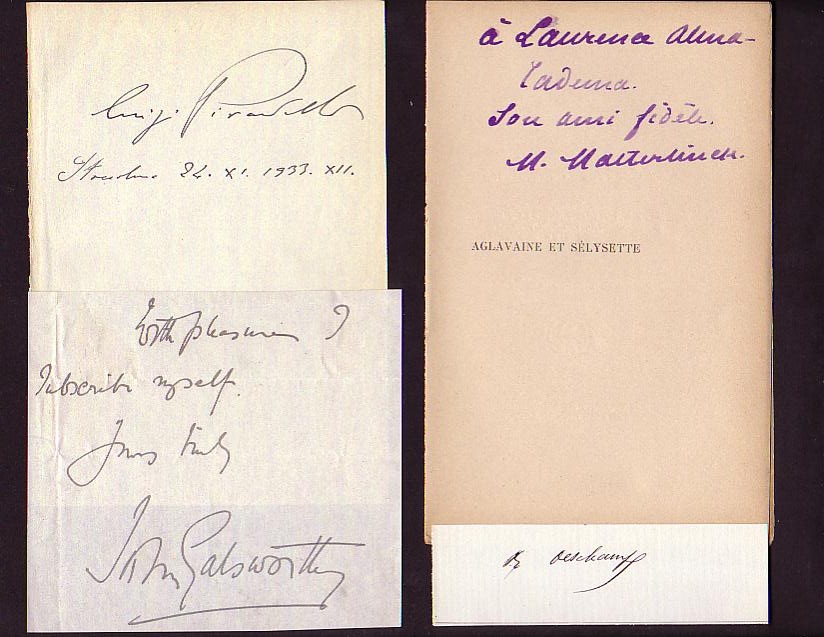 Luigi Pirandello
24. XI. 1933. XII.
With pleasure I
Subscribe myself.
Yours truly
John Galsworthy
à Laurence Alma-
Tadema.
Son ami fidèle.
M. Maeterlinck.
AGLAVAINE ET SÉLYSETTE
Deschamps